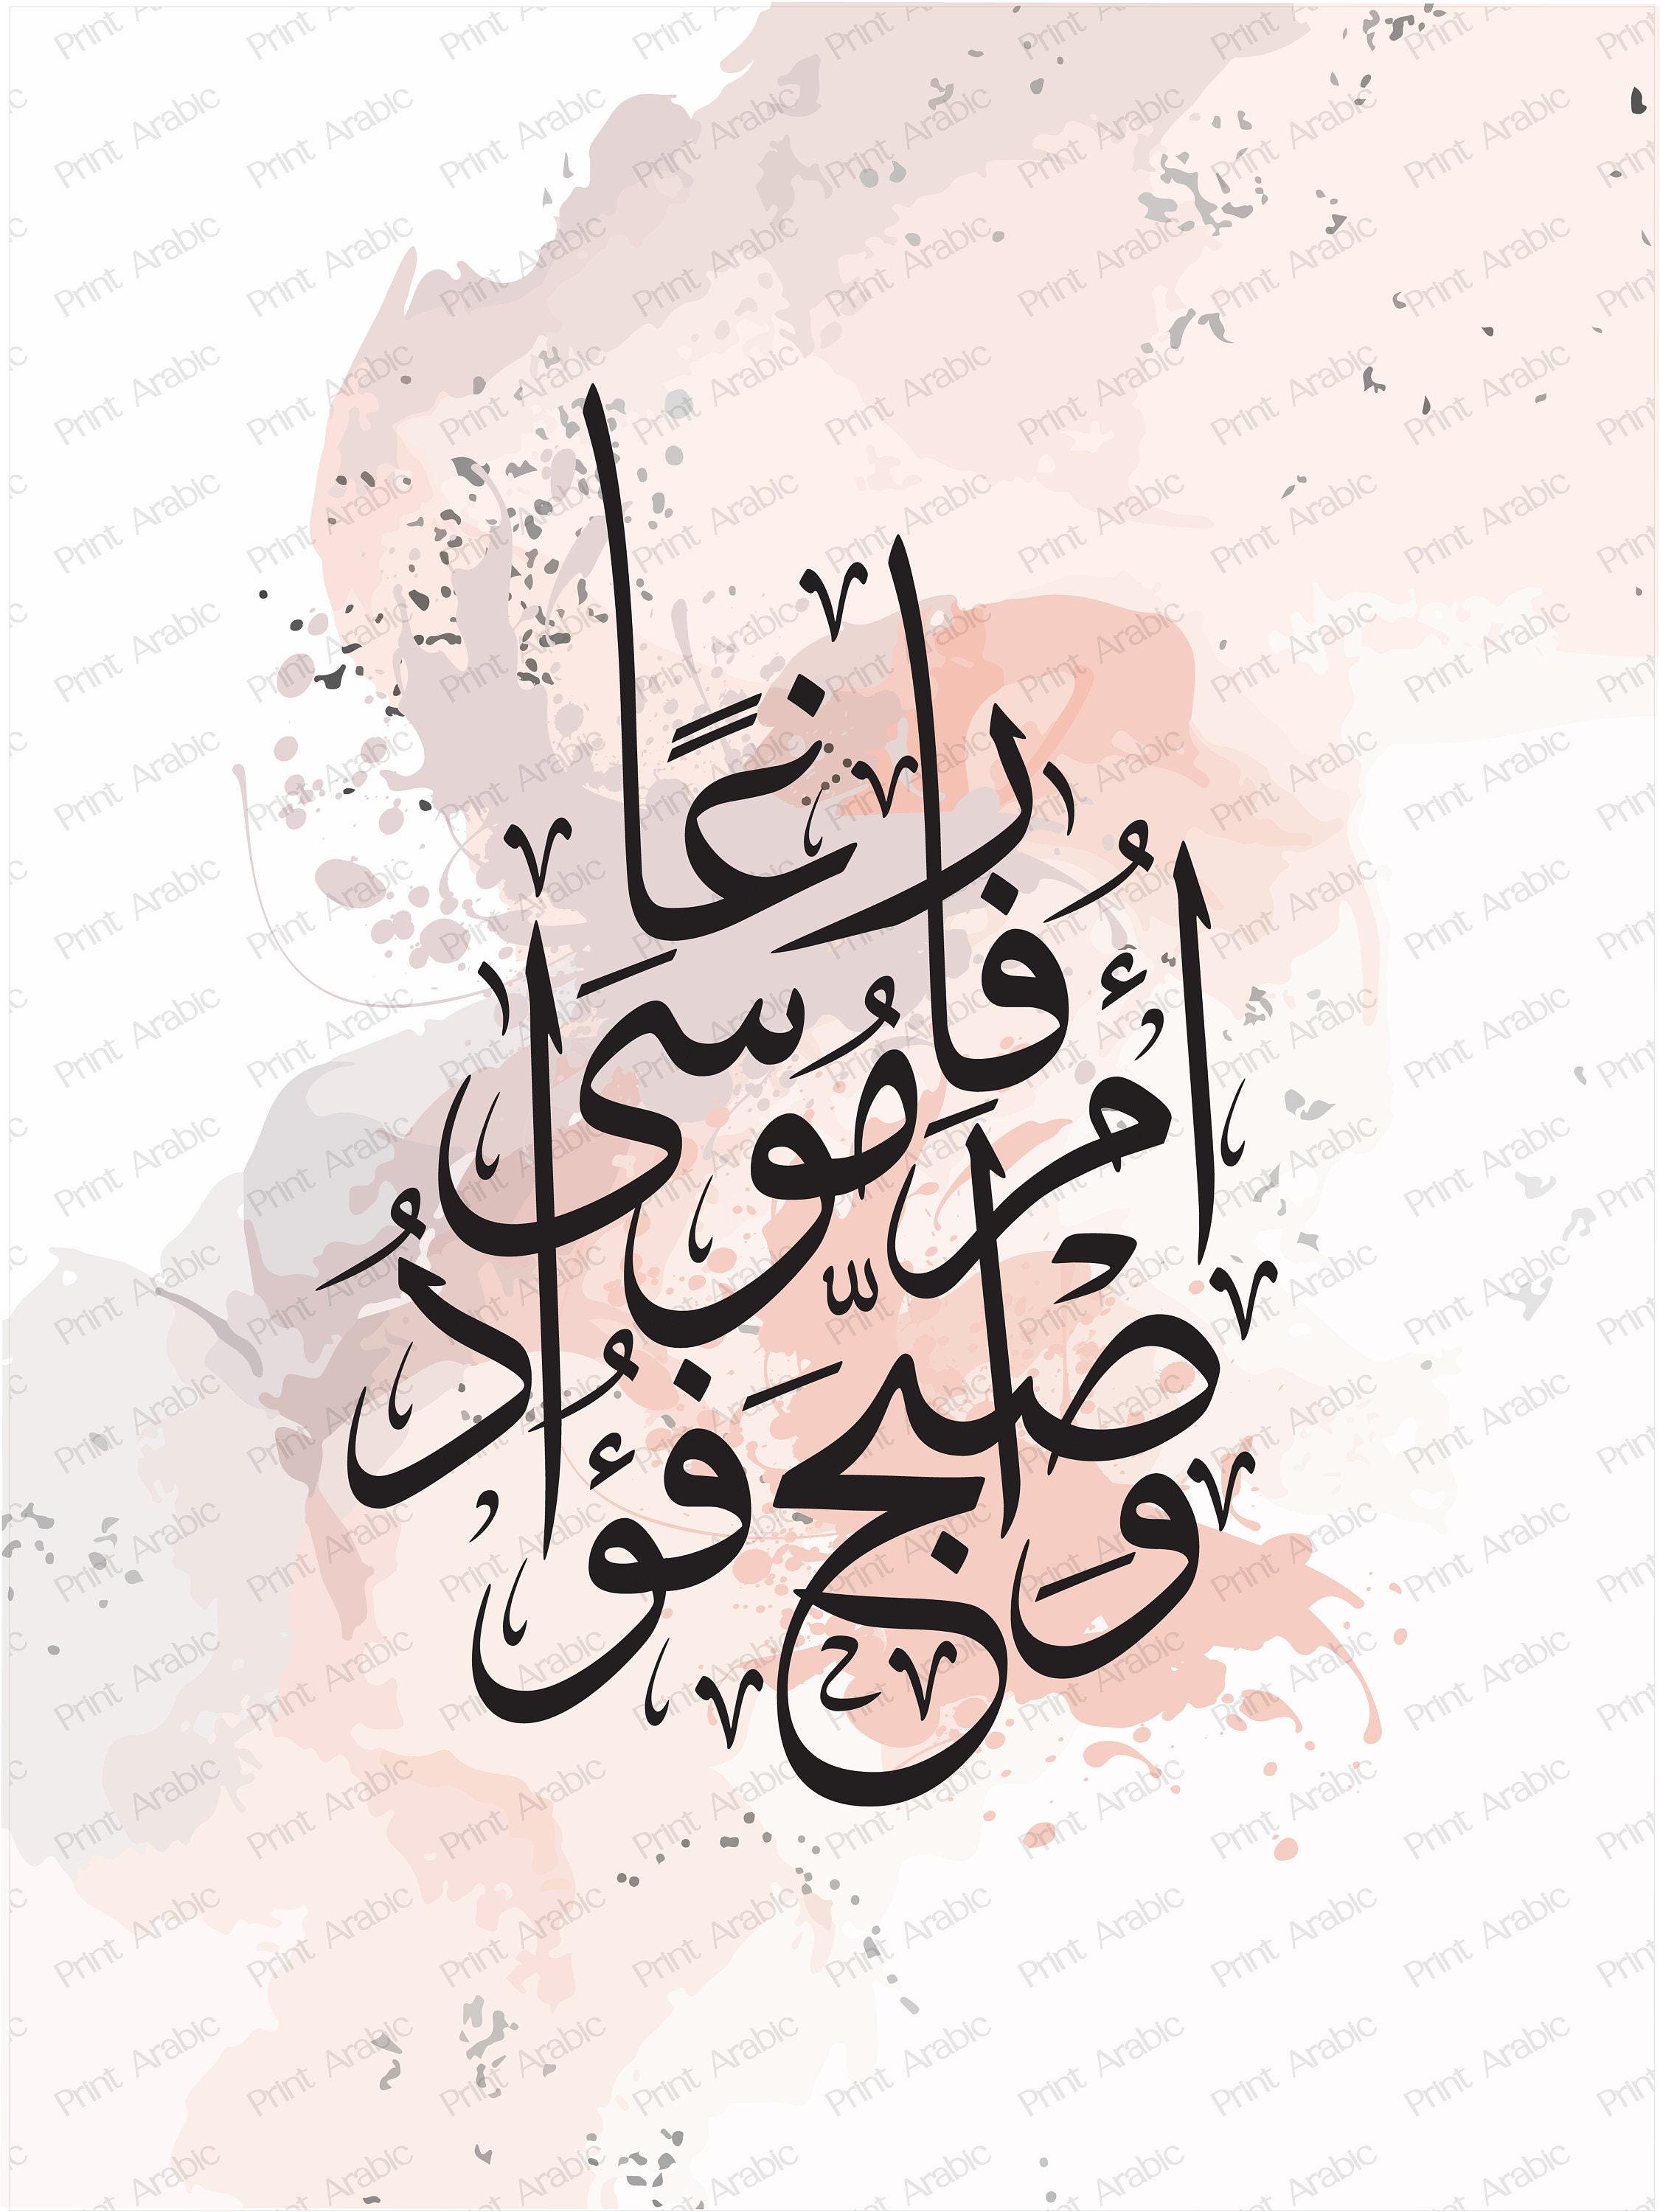 وَأَصْبَحَ فُؤَادُ
أُمِّ مُوسَىٰ
فَارِغًا
Print Arabic